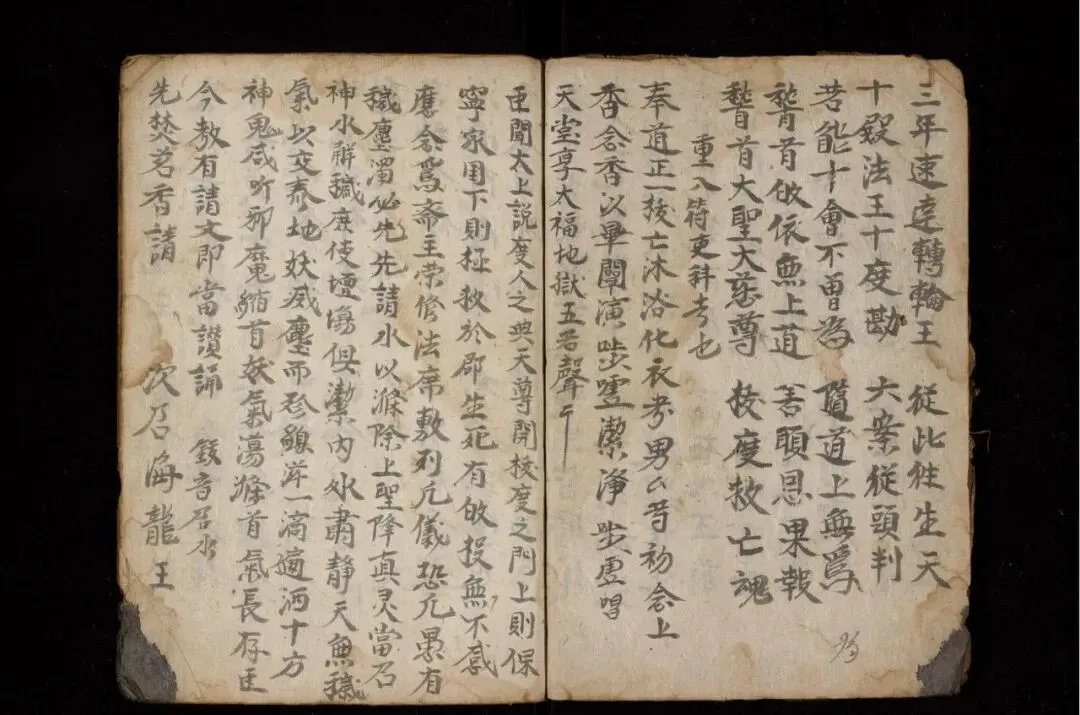 三年速達轉輪王 從此往生天
十殿法王十度勘 六案從頭判
若能十會不曾為 隨道上無為
稽首皈依無上道 善願恩果報
稽首大聖大慈尊 拔度救亡魂
重入符吏科考也
奉道正一拔亡沐浴化衣孝男厶等初念上
香念香以畢闡演步虛潔淨 步虛唱
天堂享太福地獄五苦聲
臣聞太上說度人之典天尊開拔度之門上則保
寧家國下則拯救於郡生死有皈投無不感
應念為斋主荣修法席敷列凡儀恐凡愚有
穢塵濁必先先請水以滌除上聖降真灵當召
神水解穢庶使壇場俱潔內外肅靜天無穢
氣以交泰地妖戚塵而殄鎖洋一滴遍洒十方
神鬼咸听邪魔縮首妖氣蕩滌首氣長存臣
今教有請文即當讚誦 鼓音召水
先焚茗香請 次召海龍王